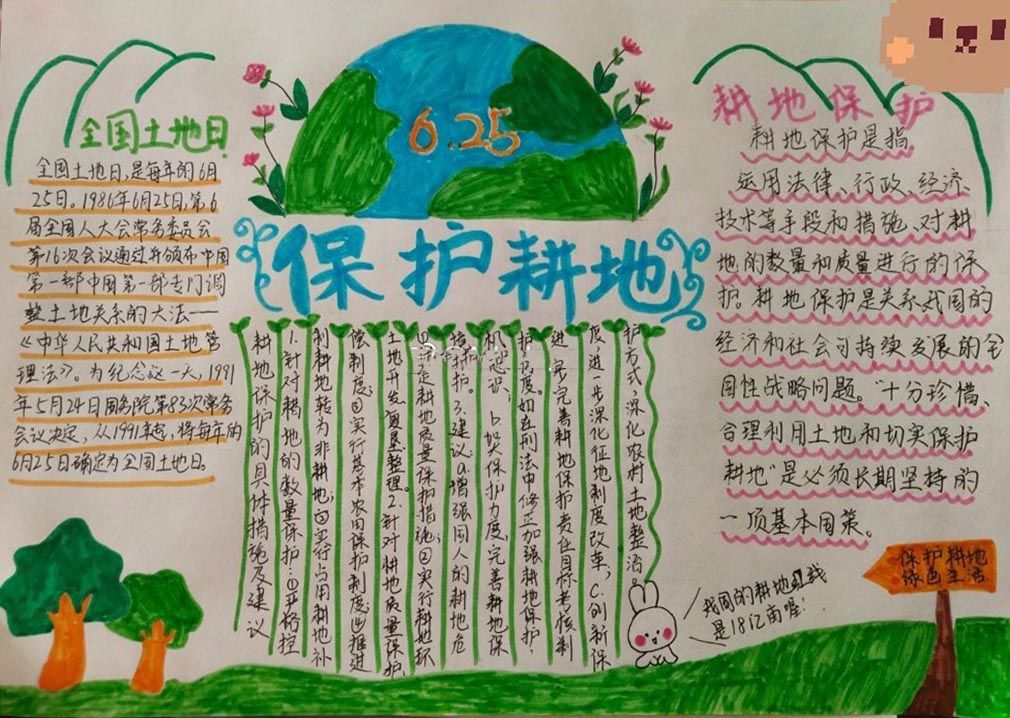 6.25
保护耕地
全国土地日
全国土地日,是每年的6月
25日。1986年6月25日,第6
届全国人大会常务委员会
第16次会议通过并颁布中国
第一部中国第一部专门调
整土地关系的大法——
《中华人民共和国土地管
理法》。为纪念这一天,1991
年5月24日国务院第83次常务
会议决定,从1991年起,将每年的
6月25日确定为全国土地日。
耕地保护的具体措施及建议
1.针对耕地的数量保护:①严格控
利耕地转为非耕地;②实行占用耕地补
偿制度;③实行基本农田保护制度;④推进
土地开发复垦整理。2.针对耕地质量保护:
定耕地质量保护措施;②实行耕地环
保护。3.建议:a.增强国人的耕地危
机意识,b.加大保护力度,完善耕地保
护制度。如在刑法中修正加强耕地保护,
进一步完善耕地保护责任目标考核制
度,进一步深化征地制度改革,C.创新保
护方式,深化农村土地整治。
耕地保护
耕地保护是指
运用法律、行政、经济、
技术等手段和措施、对耕
地的数量和质量进行的保
护。耕地保护是关系我国的
经济和社会可持续发展的全
国性战略问题。"十分珍惜、
合理利用土地和切实保护
耕地"是必须长期坚持的
一项基本国策。
保护耕地
绿色生活
我国的耕地红线
是18亿亩喔!